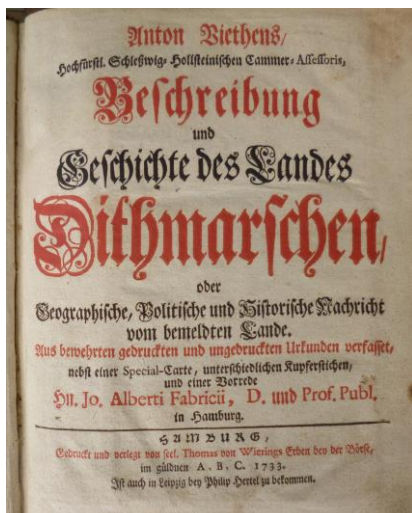 Anton Viethens/
Hochfürstl. Schleßwig-Hollsteinischen Cammer-Assessoris,
Beschreibung
und
Geschichte des Landes
Dithmarschen,
oder
Geographische, Politische und Historische Nachricht
vom bemeldten Lande.
Aus bewehrten gedruckten und ungedruckten Urkunden verfasset,
nebst einer Special-Carte, unterschiedlichen Kupferstichen,
und einer Vorrede
Hn. Jo. Alberti Fabricii, D. und Prof. Publ.
in Hamburg.
HAMBURG,
Gedruckt und verlegt von seel. Thomas von Wierings Erben bey der Börse,
im güldnen A. B. C. 1733.
Ist auch in Leipzig bey Philip Hertel zu bekommen.